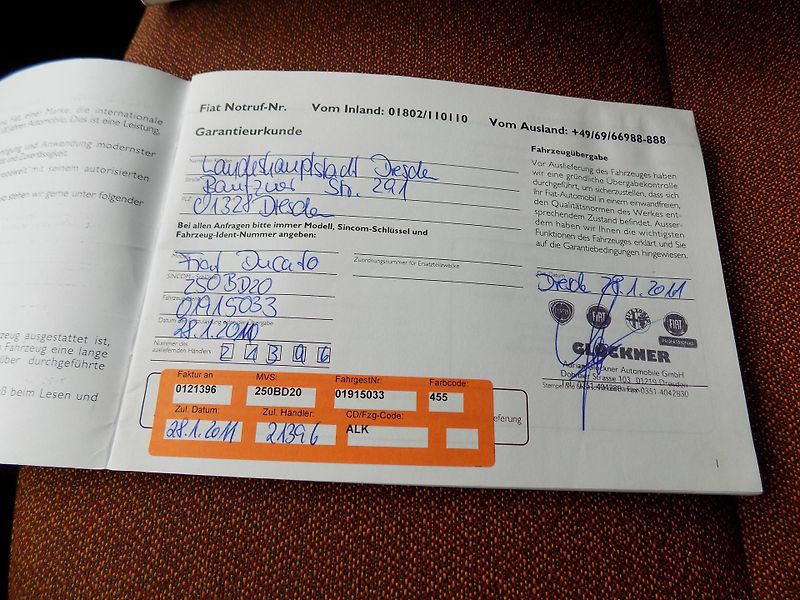 Fiat, einer Marke, die internationale
Automobile. Dies ist eine Leistung,
und Anwendung modernster
und Zuverlässigkeit.
mit seinem autorisierten
stehen wir gerne unter folgender
ausgestattet ist,
Fahrzeug eine lange
über durchgeführte
beim Lesen und
Fiat Notruf-Nr. Vom Inland: 01802/110110 Vom Ausland: +49/69/66988-888
Garantieurkunde
Landeshauptstadt Dresden
Bautzner Str. 291
PLZ
01328 Dresden
Bei allen Anfragen bitte immer Modell, Sincom-Schlüssel und
Fahrzeug-Ident-Nummer angeben:
Fiat Ducato
Zuordnungsnummer für Ersatzteilzwecke
SINCOM
250BD20
01915033
28.1.2011
Nummer des
ausliefernden Händlers
21396
Fahrzeugübergabe
Vor Auslieferung des Fahrzeuges haben
wir eine gründliche Übergabekontrolle
durchgeführt, um sicherzustellen, dass sich
Ihr Fiat-Automobil in einem einwandfreien,
den Qualitätsnormen des Werkes ent-
sprechendem Zustand befindet. Ausser-
dem haben wir Ihnen die wichtigsten
Funktionen des Fahrzeuges erklärt und Sie
auf die Garantiebedingungen hingewiesen.
Datum
Dresden 28.1.2011
FIAT
PROFESSIONAL
GLÖCKNER
Glöckner Automobile GmbH
Dohnaer Strasse 103 01219 Dresden
Tel. 0351-4042800 Fax 0351-4042830
Faktur an MVS: FahrgestNr: Farbcode:
0121396 250BD20 01915033 455
Zul. Datum: Zul. Händler: CD/Fzg-Code:
28.1.2011 21396 ALK
lieferung
1